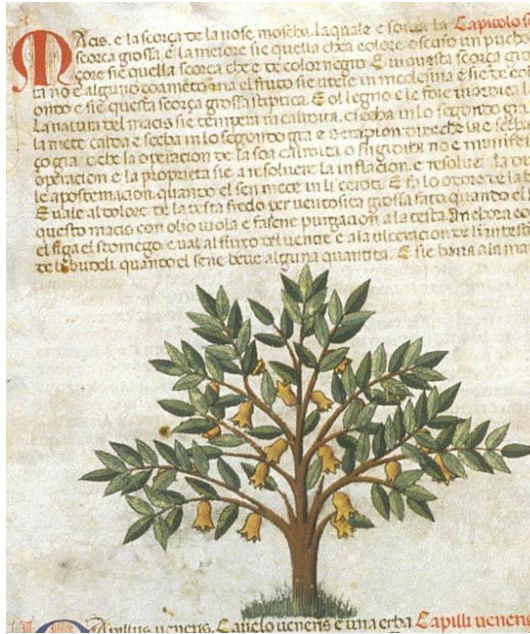 Macis. e la scorça de la nose moscha. la quale e sovra la Capitolo
scorça grossa. E la meiore sie quella ch'a colore oscuro un pucho
çore sie quella scorça che e de color negro E in questa scorça
ta no e alguno coameto ma el fruto sie utele in medesina e sie de
onto e sie questa scorça grossa stiptica. E ol legno e le foie
La natura del macis sie tempera in calidita. e secha in lo segondo gra
la mete calda e secha in lo segondo gra e Serapion dixe che la e
ço gra e che la operacion de la soa calidita o frigidita no e
operacion e la proprieta sie a resolvere la inflacion. e resolver la
le apostemacion. quando el sen mete in li ceroti E fa lo odore de la
E vale al dolore de la testa fredo per ventosita grossa fato. quando el
questo macis con olio viola e fasene purgacion a la testa Anchora
el figa el stomego e val al fluxo del ventre e a la ulceracion de
de li budeli quando el sene beve alguna quantita. E sie bona a la
Capillus veneris. Cavelo veneris e una erba Capilli veneri